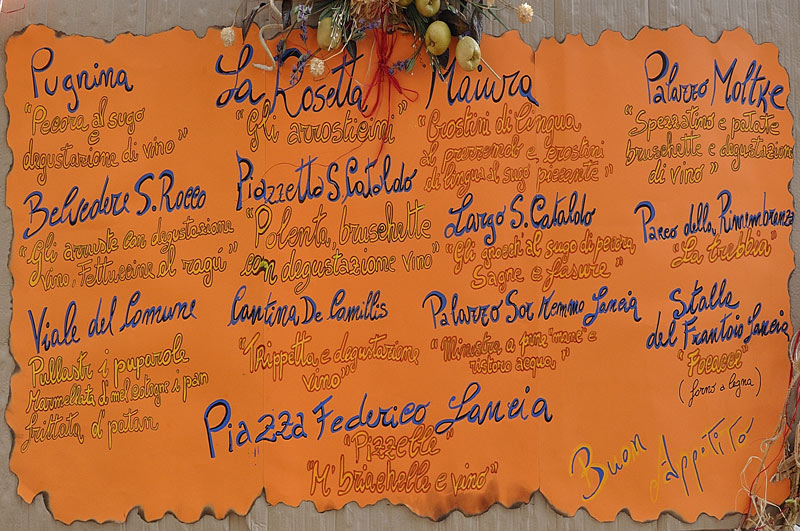 Pugnina
"Pecora al sugo
e
degustazione di vino"
Belvedere S. Rocco
"Gli arruste con degustazione
vino, Fettuccine al ragú"
Viale del Comune
Pullastr i puparole
Marmellata di mel cotogne i pan
frittata d' patan
La Rosetta
"Gli arrosticini"
Piazzetta S. Cataldo
"Polenta, bruschette
con degustazione vino"
Cantina De Camillis
"Trippetta e degustazione
vino"
Maiura
"Crostini di lingua
al prezzemolo e crostini
di lingua al sugo piccante"
Largo S. Cataldo
"Gli gnocchi al sugo di pecora,
Sagne e fasure"
Palazzo Sor Memmo Lancia
"Minestra a pene "mane" e
ristoro acqua,"
Palazzo Moltke
"Spezzatino e patate
bruschette e degustazione
di vino"
Parco della Rimembranza
"La trebbia"
Stalla
del Frantoio Lancia
"Focacce"
(forno a legna)
Piazza Federico Lancia
"Pizzelle"
"M'briachelle e vino"
Buon appetito